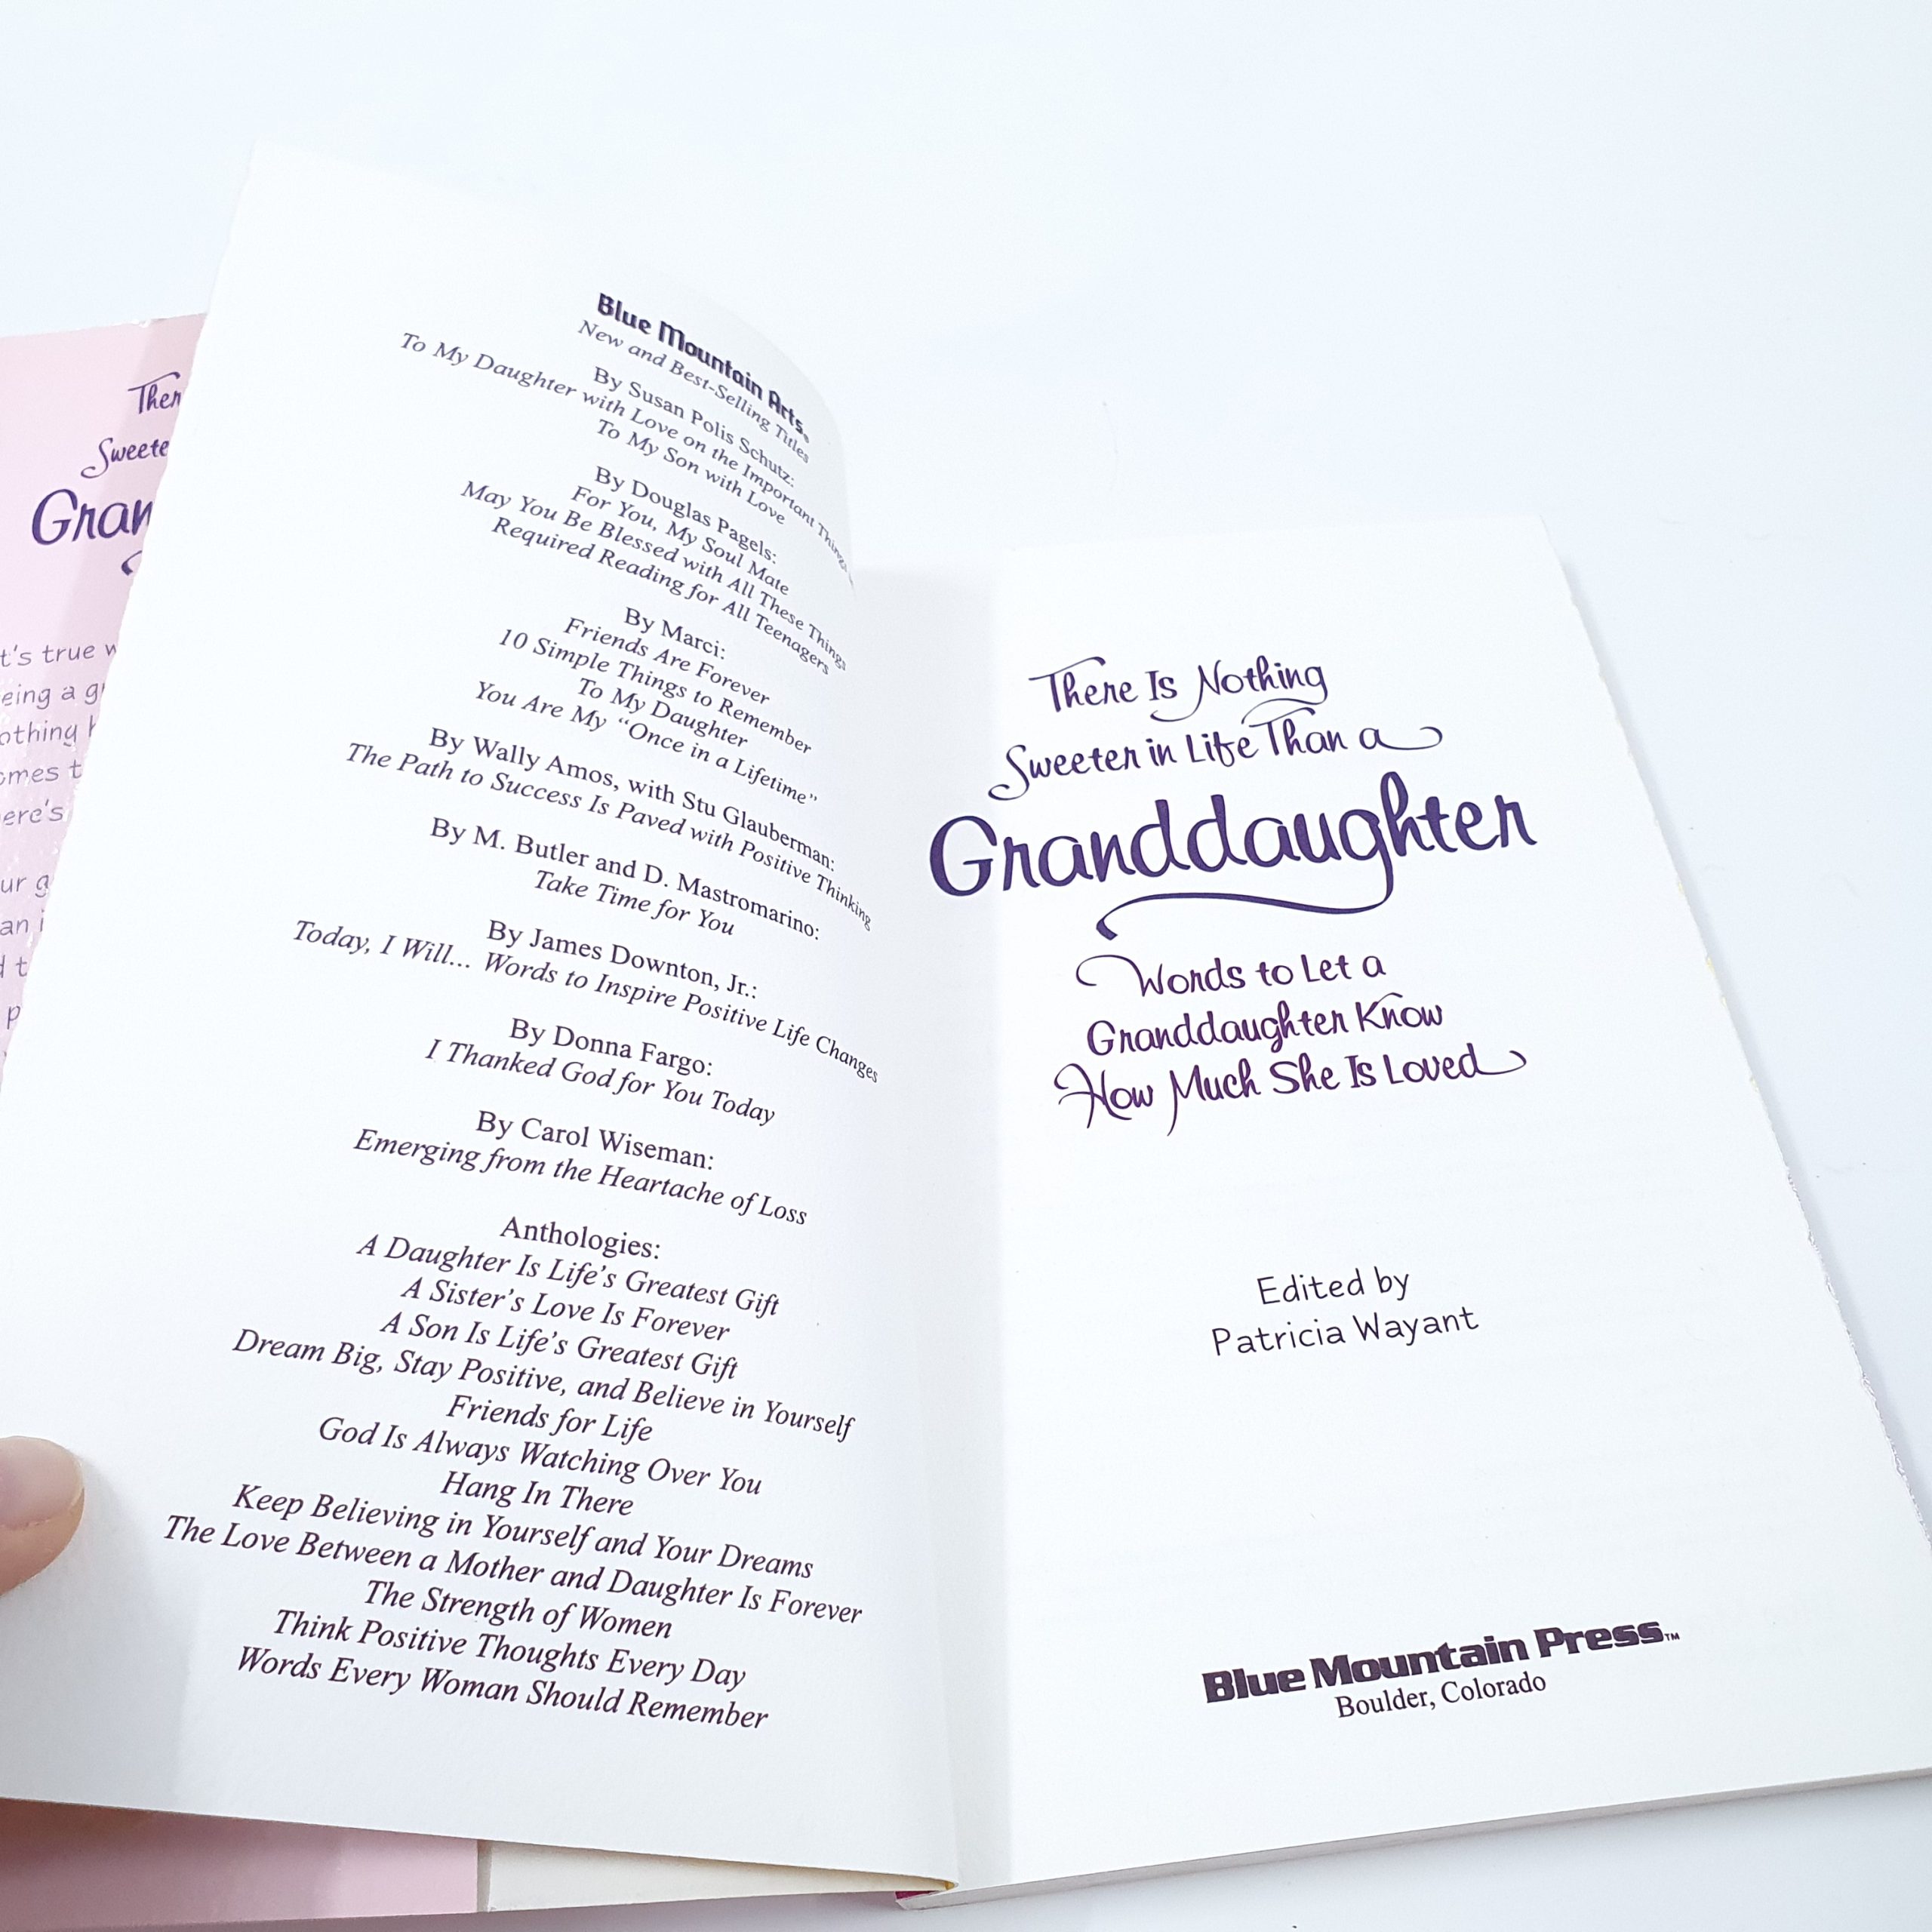 Ther
Sweete
Gran
t's true w
eing a g
othing
omes t
ere's
ur g
an i
d t
p
Blue Mountain Arts®
New and Best-Selling Titles
By Susan Polis Schutz:
To My Daughter with Love on the Important Things
To My Son with Love
By Douglas Pagels:
For You, My Soul Mate
May You Be Blessed with All These Things
Required Reading for All Teenagers
By Marci:
Friends Are Forever
10 Simple Things to Remember
To My Daughter
You Are My “Once in a Lifetime”
By Wally Amos, with Stu Glauberman:
The Path to Success Is Paved with Positive Thinking
By M. Butler and D. Mastromarino:
Take Time for You
By James Downton, Jr.:
Today, I Will... Words to Inspire Positive Life Changes
By Donna Fargo:
I Thanked God for You Today
By Carol Wiseman:
Emerging from the Heartache of Loss
Anthologies:
A Daughter Is Life’s Greatest Gift
A Sister’s Love Is Forever
A Son Is Life’s Greatest Gift
Dream Big, Stay Positive, and Believe in Yourself
Friends for Life
God Is Always Watching Over You
Hang In There
Keep Believing in Yourself and Your Dreams
The Love Between a Mother and Daughter Is Forever
The Strength of Women
Think Positive Thoughts Every Day
Words Every Woman Should Remember
There Is Nothing
Sweeter in Life Than a
Granddaughter
Words to Let a
Granddaughter Know
How Much She Is Loved
Edited by
Patricia Wayant
Blue Mountain Press™
Boulder, Colorado